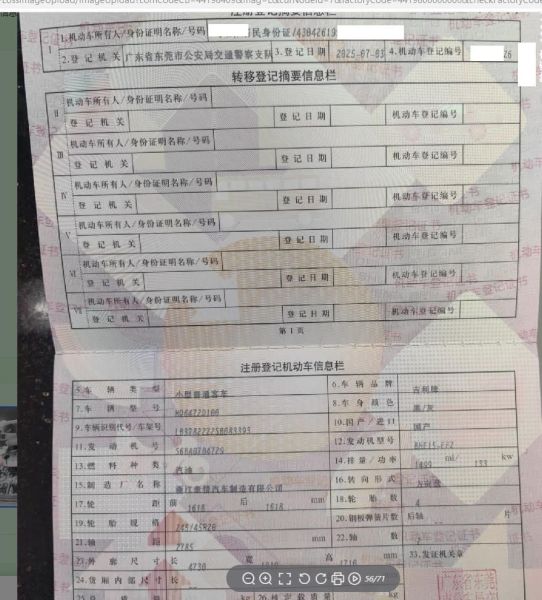 注册登记摘要信息栏
I 1.机动车所有人/身份证明名称/号码 民身份证/43042619
2.登记机关 广东省东莞市公安局交通警察支队 3.登记日期 2025-07-03 4.机动车登记编号
转移登记摘要信息栏
II 机动车所有人/身份证明名称/号码
登记机关 登记日期 机动车登记编号
III 机动车所有人/身份证明名称/号码
登记机关 登记日期 机动车登记编号
IV 机动车所有人/身份证明名称/号码
登记机关 登记日期 机动车登记编号
V 机动车所有人/身份证明名称/号码
登记机关 登记日期 机动车登记编号
VI 机动车所有人/身份证明名称/号码
登记机关 登记日期 机动车登记编号
VII 机动车所有人/身份证明名称/号码
登记机关 登记日期 机动车登记编号
第1页
注册登记机动车信息栏
5.车辆类型 小型普通客车 6.车辆品牌 吉利牌
7.车辆型号 8.车身颜色 黑/灰
9.车辆识别代号/车架号 10.国产/进口 国产
11.发动机号 12.发动机型号 BHE15-EFZ
13.燃料种类 汽油 14.排量/功率 1499 ml/ 133 kw
15.制造厂名称 浙江豪情汽车制造有限公司 16.转向形式 方向盘
17.轮距 前 1618 后 1618 mm 18.轮胎数 4
19.轮胎规格 245/45R20 20.钢板弹簧片数 后轴 片
21.轴距 2785 mm 22.轴数
23.外廓尺寸 长 4730 宽 高 1716 mm 33.发证机关章
24.货厢内部尺寸 长
56/71
kg 26.核定载质量 kg